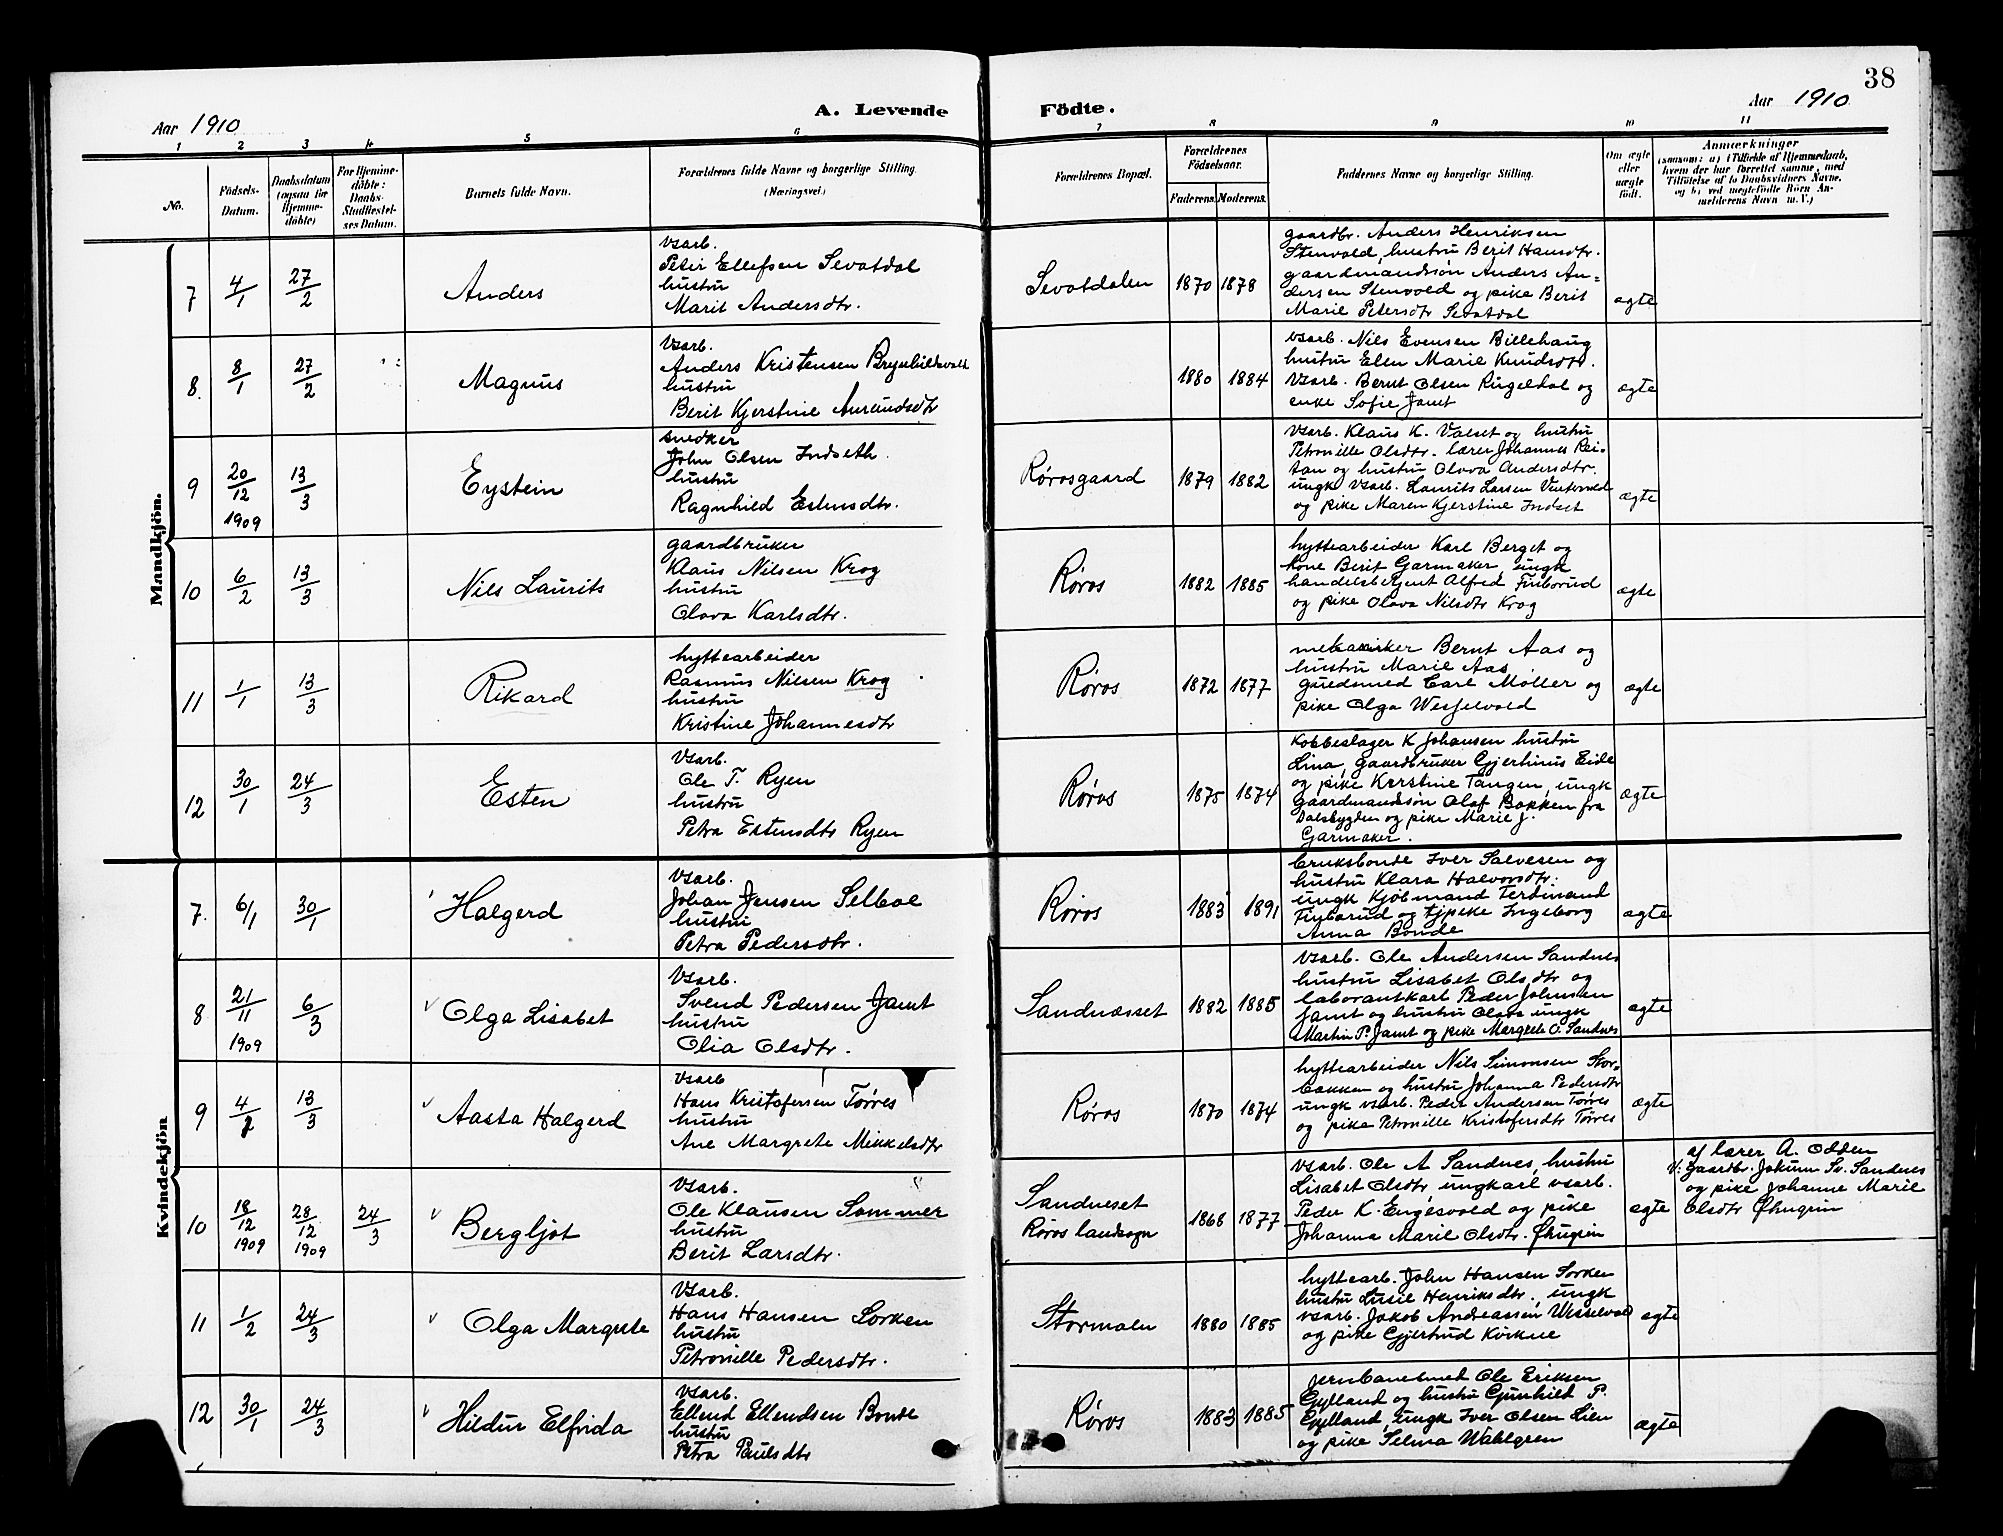 38
A. Levende Födte.
Aar 1910
Aar 1910
1 2 3 4 5 6 7 8 9 10 11
No.
Födsels-
Datum.
Daabsdatum
(ogsaa for
Hjemme-
døbte)
For Hjemme-
døbte:
Daabs-
Stadfæstel-
ses Datum.
Barnets fulde Navn.
Forældrenes fulde Navne og borgerlige Stilling
(Næringsvei.)
Forældrenes Bopæl.
Forældrenes
Födselsaar.
Faderens. Moderens.
Faddernes Navne og borgerlige Stilling.
Om ægte
eller
uægte
født.
Anmærkninger
(saasom: a) i Tilfælde af Hjemmedaab,
hvem der har forrettet samme, med
Tilføielse af to Daabsvidners Navne,
og b) ved uægtefødte Börn An-
melderens Navn m. V.)
Mandkjön.
7 4/1 27/2 Anders
Vsarb.
Peter Ellefsen Sevatdal
hustru
Marit Andersdtr.
Sevatdalen 1870 1878
gaardbr. Anders Henriksen
Stenvold, hustru Berit Hansdtr.
gaardmandssøn Anders An-
dersen Stenvold og pike Berit
Marie Petersdtr Sevatdal
ægte
8. 8/1 27/2 Magnus
Vsarb.
Anders Kristensen Brynhildsvold
hustru
Berit Kjerstine Amundsdtr
1880 1884
Vsarb. Nils Evensen Billehaug
hustru Ellen Marie Knudsdtr.
Vsarb. Bernt Olsen Ringeldal og
enke Sofie Jamt
ægte
9 20/12 1909 13/3 Eystein
snedker
John Olsen Indseth.
hustru
Ragnhild Estensdtr.
Rørosgaard 1879 1882
Vsarb. Klaus K. Valset og hustru
Petronille Olsdtr. lærer Johannes Rei-
tan og hustru Olava Andersdtr.
ungk vsarb. Laurits Larsen
og pike Maren Kjerstine Indset
ægte
10 6/2 13/3 Nils Laurits
gaardbruker
Klaus Nilsen Krog
hustru
Olava Karlsdtr.
Røros 1882 1885
hyttearbeider Karl Berget og
kone Berit Garmaker, ungk
handelsbetjent Alfred Finborud
og pike Olava Nilsdtr Krog
ægte
11 1/1 13/3 Rikard
hyttearbeider
Rasmus Nilsen Krog
hustru
Kristine Johannesdtr
Røros 1872 1877
Bernt Aas og
hustru Marie Aas
guldsmed Carl Möller og
pike Olga Wesselvold
ægte
12 30/1 24/3 Esten
Vsarb.
Ole T. Ryen
hustru
Petra Estensdtr Ryen
Røros 1875 1874
Kobbeslager K Johansen hustru
Lina, gaardbruker Gjertinus Eide
og pike Kerstine Tangen, ungk
gaardmandssøn Olaf Bakken fra
Dalsbygden og pike Marie J.
Garmaker.
ægte
Kvindekjön
7. 6/1 30/1 Halgerd
Vsarb.
Johan Jensen Selboe
hustru
Petra Pedersdtr.
Røros 1883 1891
bruksbonde Iver Salvesen og
hustru Klara Halvorsdtr.
ungk Kjøbmand Ferdinand
Finborud og tjpike Ingeborg
Anna Bonde
ægte
8 21/11 1909 6/3 Olga Lisabet
Vsarb.
Svend Pedersen Jamt
hustru
Olia Olsdtr.
Sandnæsset 1882 1885
Vsarb. Ole Andersen Sandnes
hustru Lisabet Olsdtr og
laborantkarl Peder Johnsen
Jamt og hustru Olava ungk
Martin P. Jamt og pike Margrete O. Sandnes
ægte
9 4/2 13/3 Aasta Halgerd
Vsarb
Hans Kristofersen Tørres
hustru
Ane Margrete Mikkelsdtr
Røros 1870 1874
hyttearbeider Nils Simonsen Stor-
bakken og hustru Johanna Pedersdtr
ungk vsarb. Peder Andersen Tørres
og pike Petronille Kristofersdtr Tørres
ægte
10 18/12 1909 28/12 1909 24/3 Bergljot
Vsarb.
Ole Klausen Sommer
hustru
Berit Larsdtr.
Sandneset
Røros landsogn 1868 1877
Vsarb. Ole A Sandnes, hustru
Lisabet Olsdtr ungkarl vsarb.
Peder K. Engesvold og pike
Johanna Marie Olsdtr. Øhugrin
ægte
af lærer A. Odden
V: gaardbr. Jokum Sv. Sandnes
og pike Johanne Marie
Olsdtr Øhugrin
11 1/2 24/3 Olga Margrete
Vsarb.
Hans Hansen Sorken
hustru
Petronille Pedersdtr.
Stormoen 1880 1885
hyttearb. John Hansen Sorken
hustru Lusie Henriksdtr, ungk
vsarb. Jakob Andreassen Wesselvold
og pike Gjertrud Kurkne
ægte
12 30/1 24/3 Hildur Elfrida
Vsarb.
Ellend Ellendsen Bonde
hustru
Petra Paulsdtr
Røros 1883 1885
Ole Eriksen
Gylland og hustru Gunhild P.
Gylland, ungk Iver Olsen Lien
og pike Selma Wahlgren
ægte